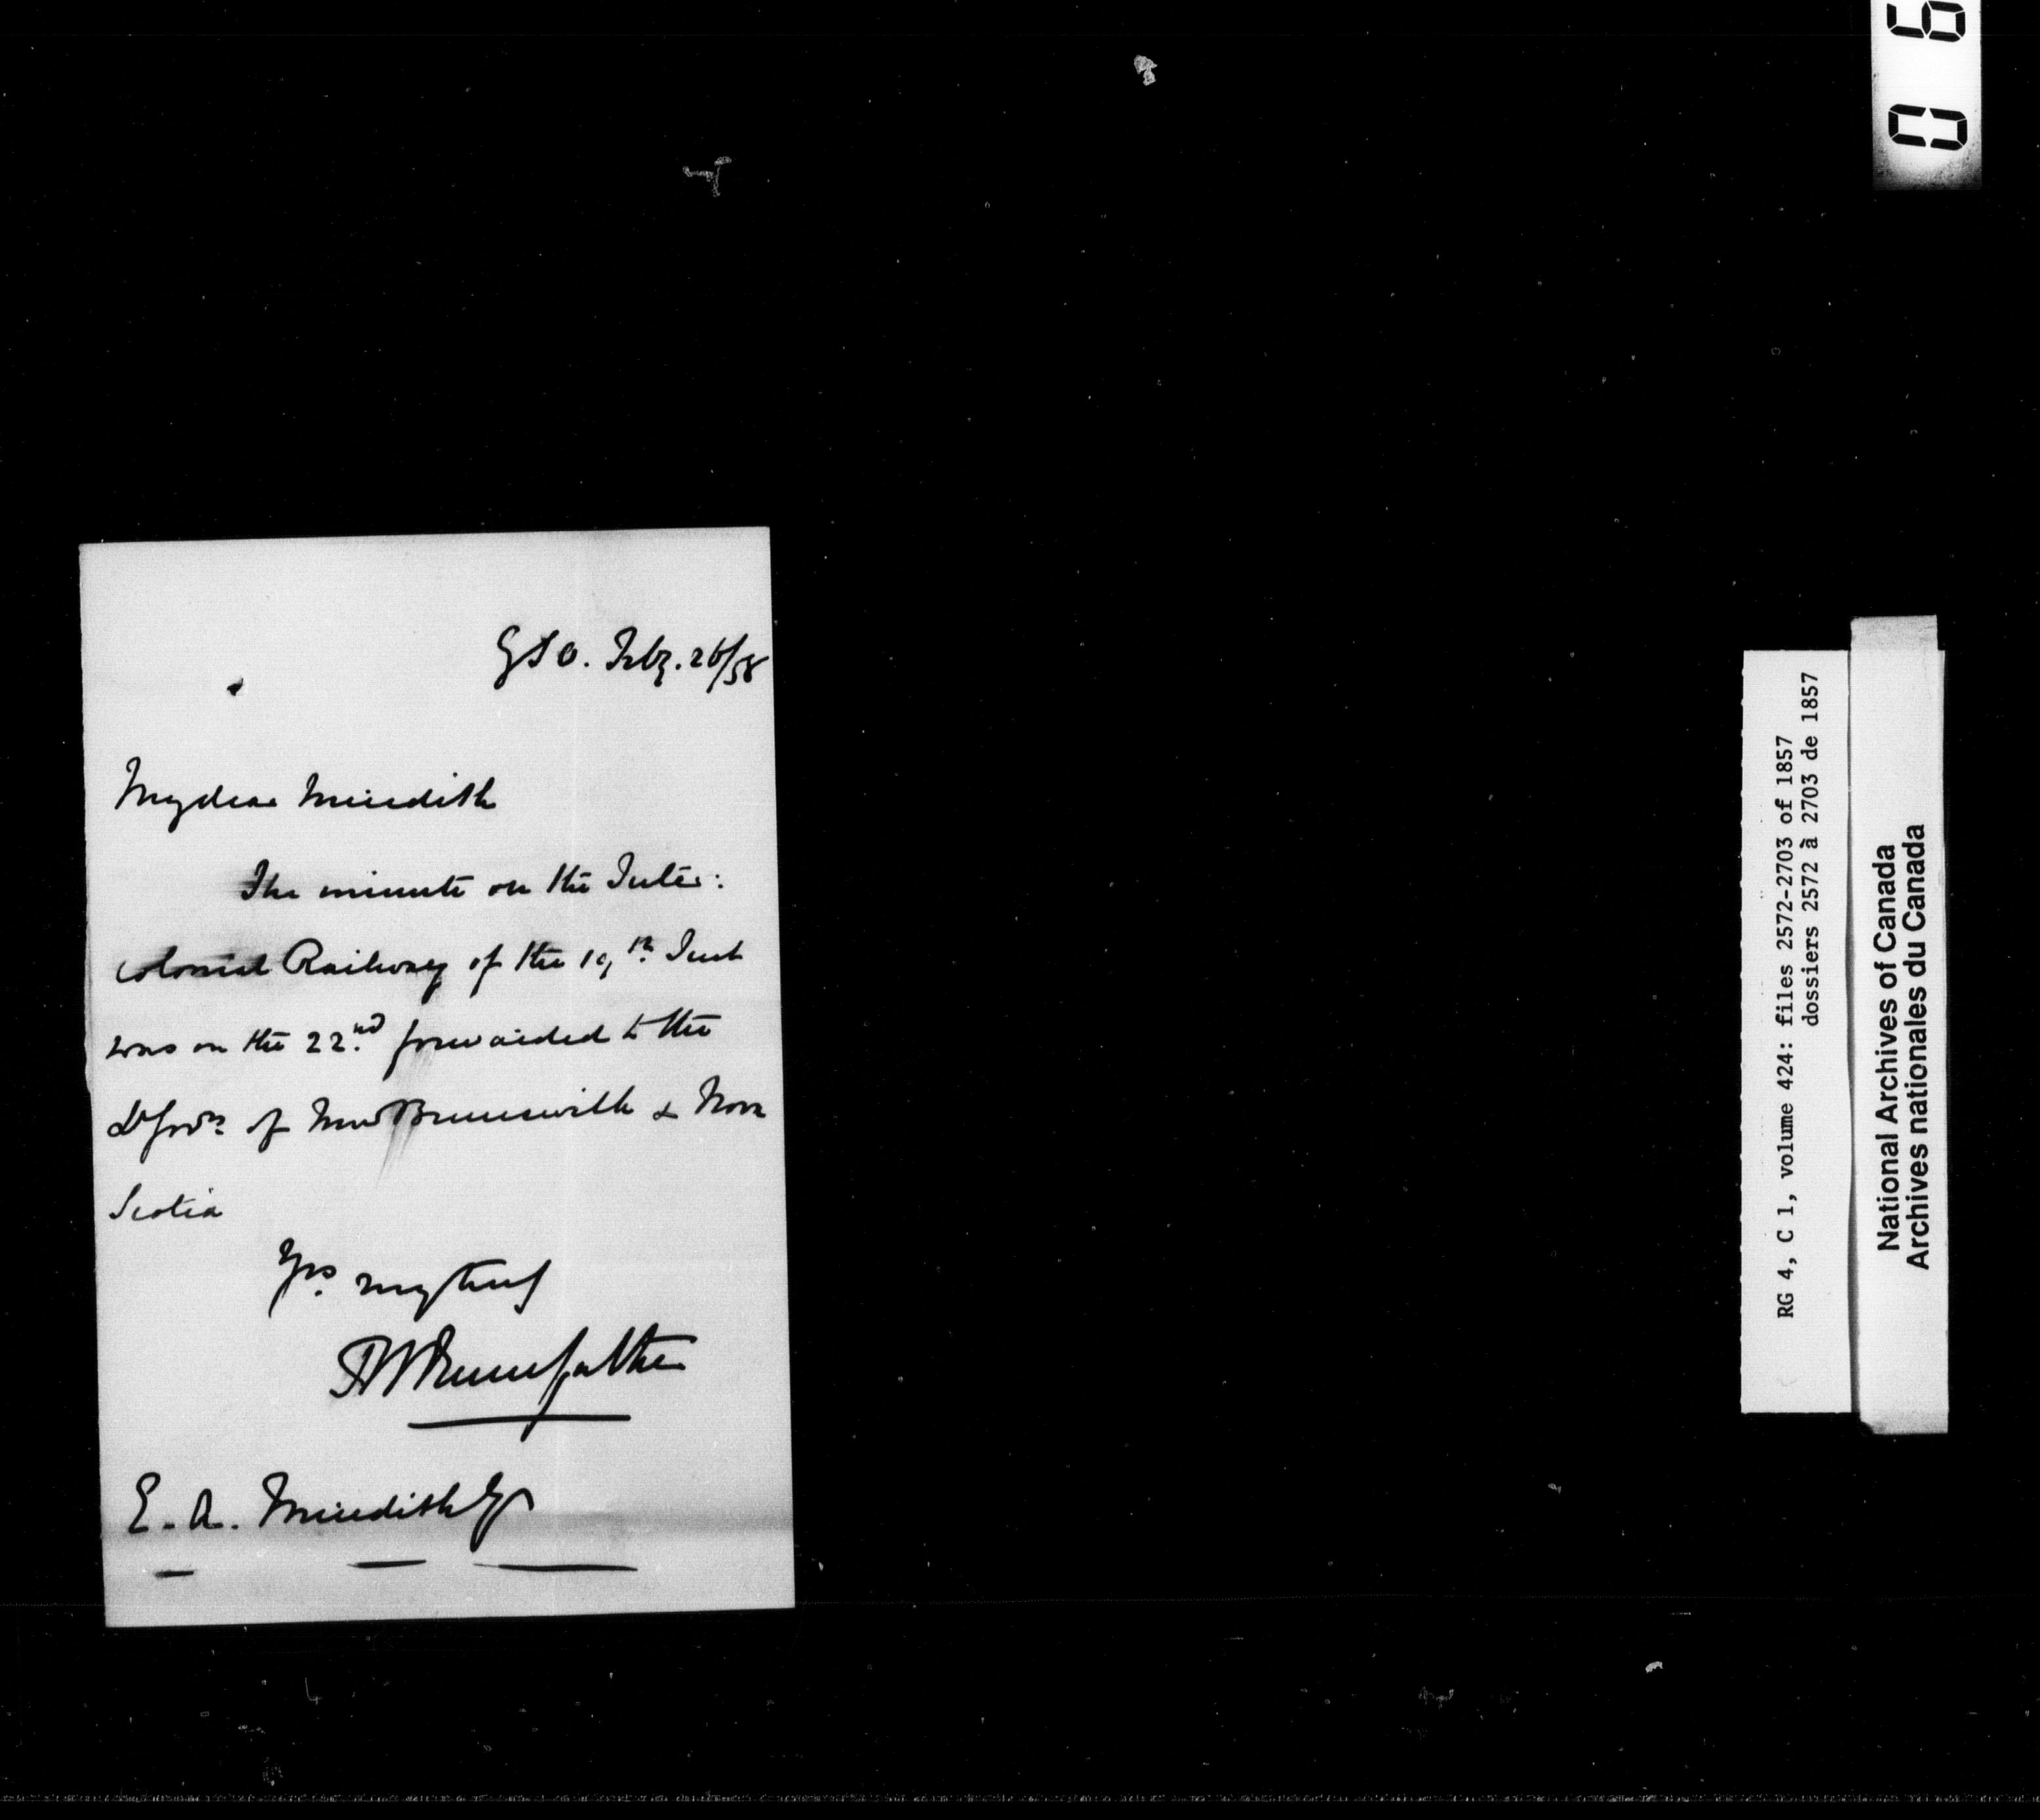 GSO. Feby. 26/58
My dear Meredith
The minute on the Inter:
colonial Railway of the 19th Inst
was on the 22nd forwarded to the
Lt Govrs of New Brunswick & Nova
Scotia
Yrs very truly
RTPennefather
E. A. Meredith Esq
RG 4, C 1, volume 424: files 2572-2703 of 1857
dossiers 2572 à 2703 de 1857
National Archives of Canada
Archives nationales du Canada
0 6